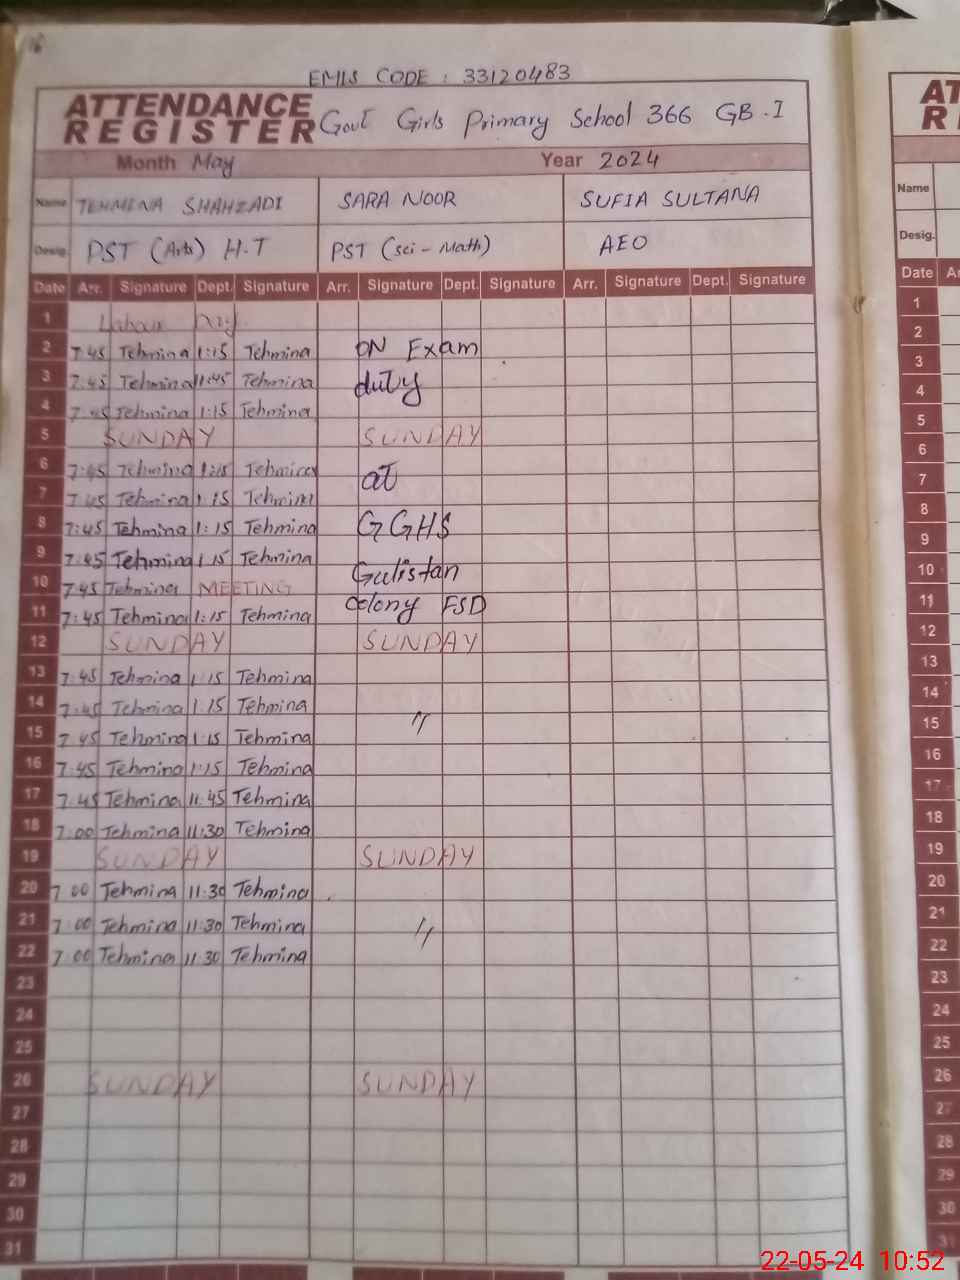 EMIS CODE : 33120483
ATTENDANCE REGISTER Govt Girls Primary School 366 GB-I
Month May Year 2024
Name TEHMINA SHAHZADI SARA NOOR SUFIA SULTANA
Desig. PST (Arts) H.T PST (sci-Math) AEO
Date Arr. Signature Dept. Signature Arr. Signature Dept. Signature Arr. Signature Dept. Signature
1 Labour Day
2 7:45 Tehmina 1:15 Tehmina ON Exam
3 7:45 Tehmina 11:45 Tehmina duty
4 7:45 Tehmina 1:15 Tehmina
5 SUNDAY SUNDAY
6 7:45 Tehmina 1:15 Tehmina
7 7:45 Tehmina 1:15 Tehmina at
8 7:45 Tehmina 1:15 Tehmina GGHS
9 7:45 Tehmina 1:15 Tehmina
10 7:45 Tehmina MEETING Gulistan
11 7:45 Tehmina 1:15 Tehmina colony FSD
12 SUNDAY SUNDAY
13 7:45 Tehmina 1:15 Tehmina
14 7:45 Tehmina 1:15 Tehmina "
15 7:45 Tehmina 1:15 Tehmina
16 7:45 Tehmina 1:15 Tehmina
17 7:45 Tehmina 11:45 Tehmina
18 7:00 Tehmina 11:30 Tehmina
19 SUNDAY SUNDAY
20 7:00 Tehmina 11:30 Tehmina
21 7:00 Tehmina 11:30 Tehmina "
22 7:00 Tehmina 11:30 Tehmina
23
24
25
26 SUNDAY SUNDAY
27
28
29
30
31
Name
Desig.
Date
1
2
3
4
5
6
7
8
9
10
11
12
13
14
15
16
17
18
19
20
21
22
23
24
25
26
27
28
29
30
22-05-24 10:52